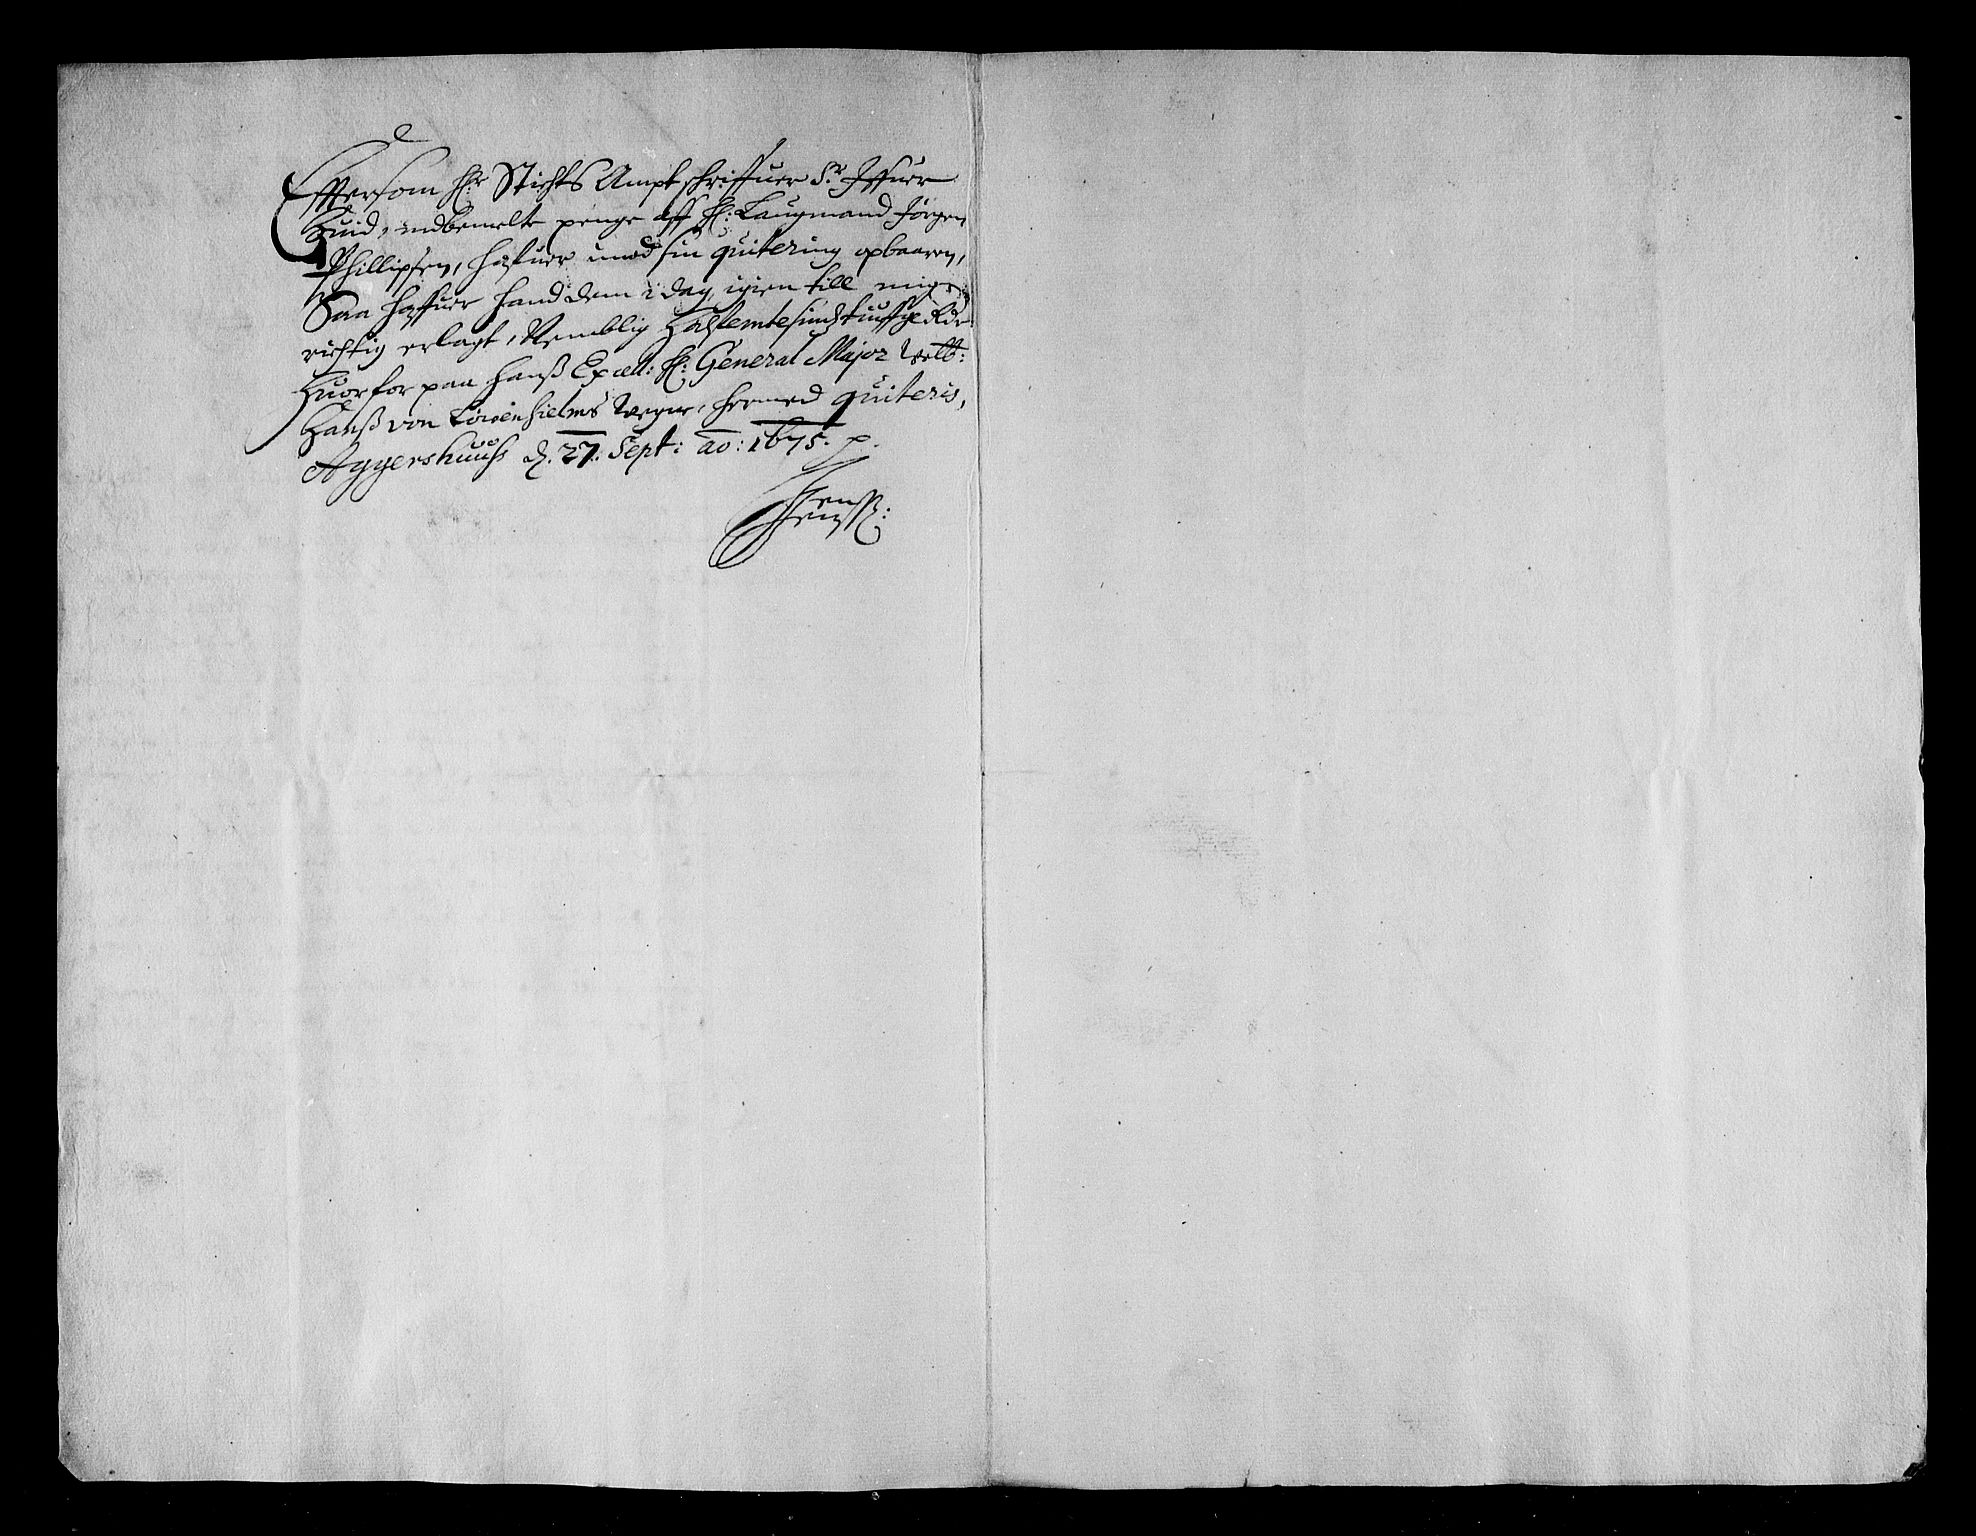 Efftersom Hr Stichts Ampt schriffuer Sr Iffuer
Huid, indbemelte penge aff H: Laugmand Jörgen
Phillipsen, haffuer imod sin quitering opbaaren,
Saa haffuer hand dem i dag igien till mig
richtig erlagt, Nemblig Halffemtesindtiuffge Rdr
Huorfor paa Hanß Excell: H: General Major Welb:
Hanß von Löwenhielms Wegne, hermed quiteris,
Aggershuuß d. 27. Sept: ao: 1675. p.